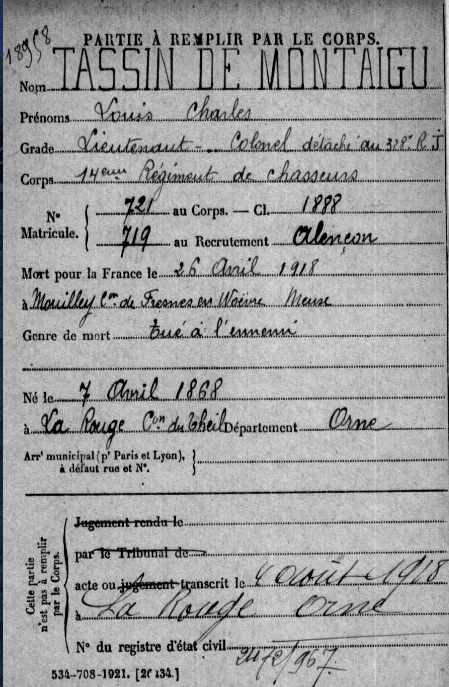 18958
PARTIE À REMPLIR PAR LE CORPS.
Nom TASSIN DE MONTAIGU
Prénoms Louis Charles
Grade Lieutenant - Colonel détaché au 328e R. I
Corps 14eme Régiment de chasseurs
N° Matricule. { 721 au Corps. — Cl. 1888
719 au Recrutement Alençon
Mort pour la France le 26 Avril 1918
à Mouilley Con de Fresnes en Woëvre Meuse
Genre de mort tué à l'ennemi
Né le 7 Avril 1868
à La Rouge Con du Theil Département Orne
Arrt municipal (pr Paris et Lyon), à défaut rue et N°. }
Cette partie n'est pas à remplir par le Corps.
Jugement rendu le
par le Tribunal de
acte ou jugement transcrit le 4 août 1918
à La Rouge Orne
N° du registre d'état civil
534-708-1921. [26434.]